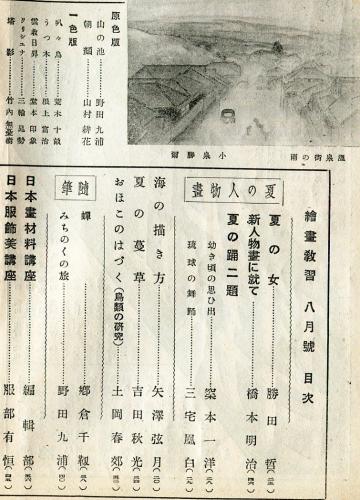 繪畫教習 八月號 目次
夏の人物畫
夏の女 勝田哲
新人物畫に就て 橋本明治
夏の踊二題
幼き頃の思ひ出 窯本一洋
琉球の舞踊 三宅凰白
海の描き方 矢澤弦月
夏の蔓草 吉田秋光
おほこのはづく(鳥類の研究) 土岡春郊
隨筆
蟬 鄕倉千靱
みちのくの旅 野田九浦
日本畫材料講座 編輯部
日本服飾美講座 服部有恒
溫泉街の雨 小泉勝爾
原色版
山の池 野田九浦
朝顏 山村耕花
一色版
叭々鳥 荒木十畝
うつ木 根上富治
雲敎日昇 堂本印象
クリシユナ 三輪晁勢
塔影 竹內無憂樹